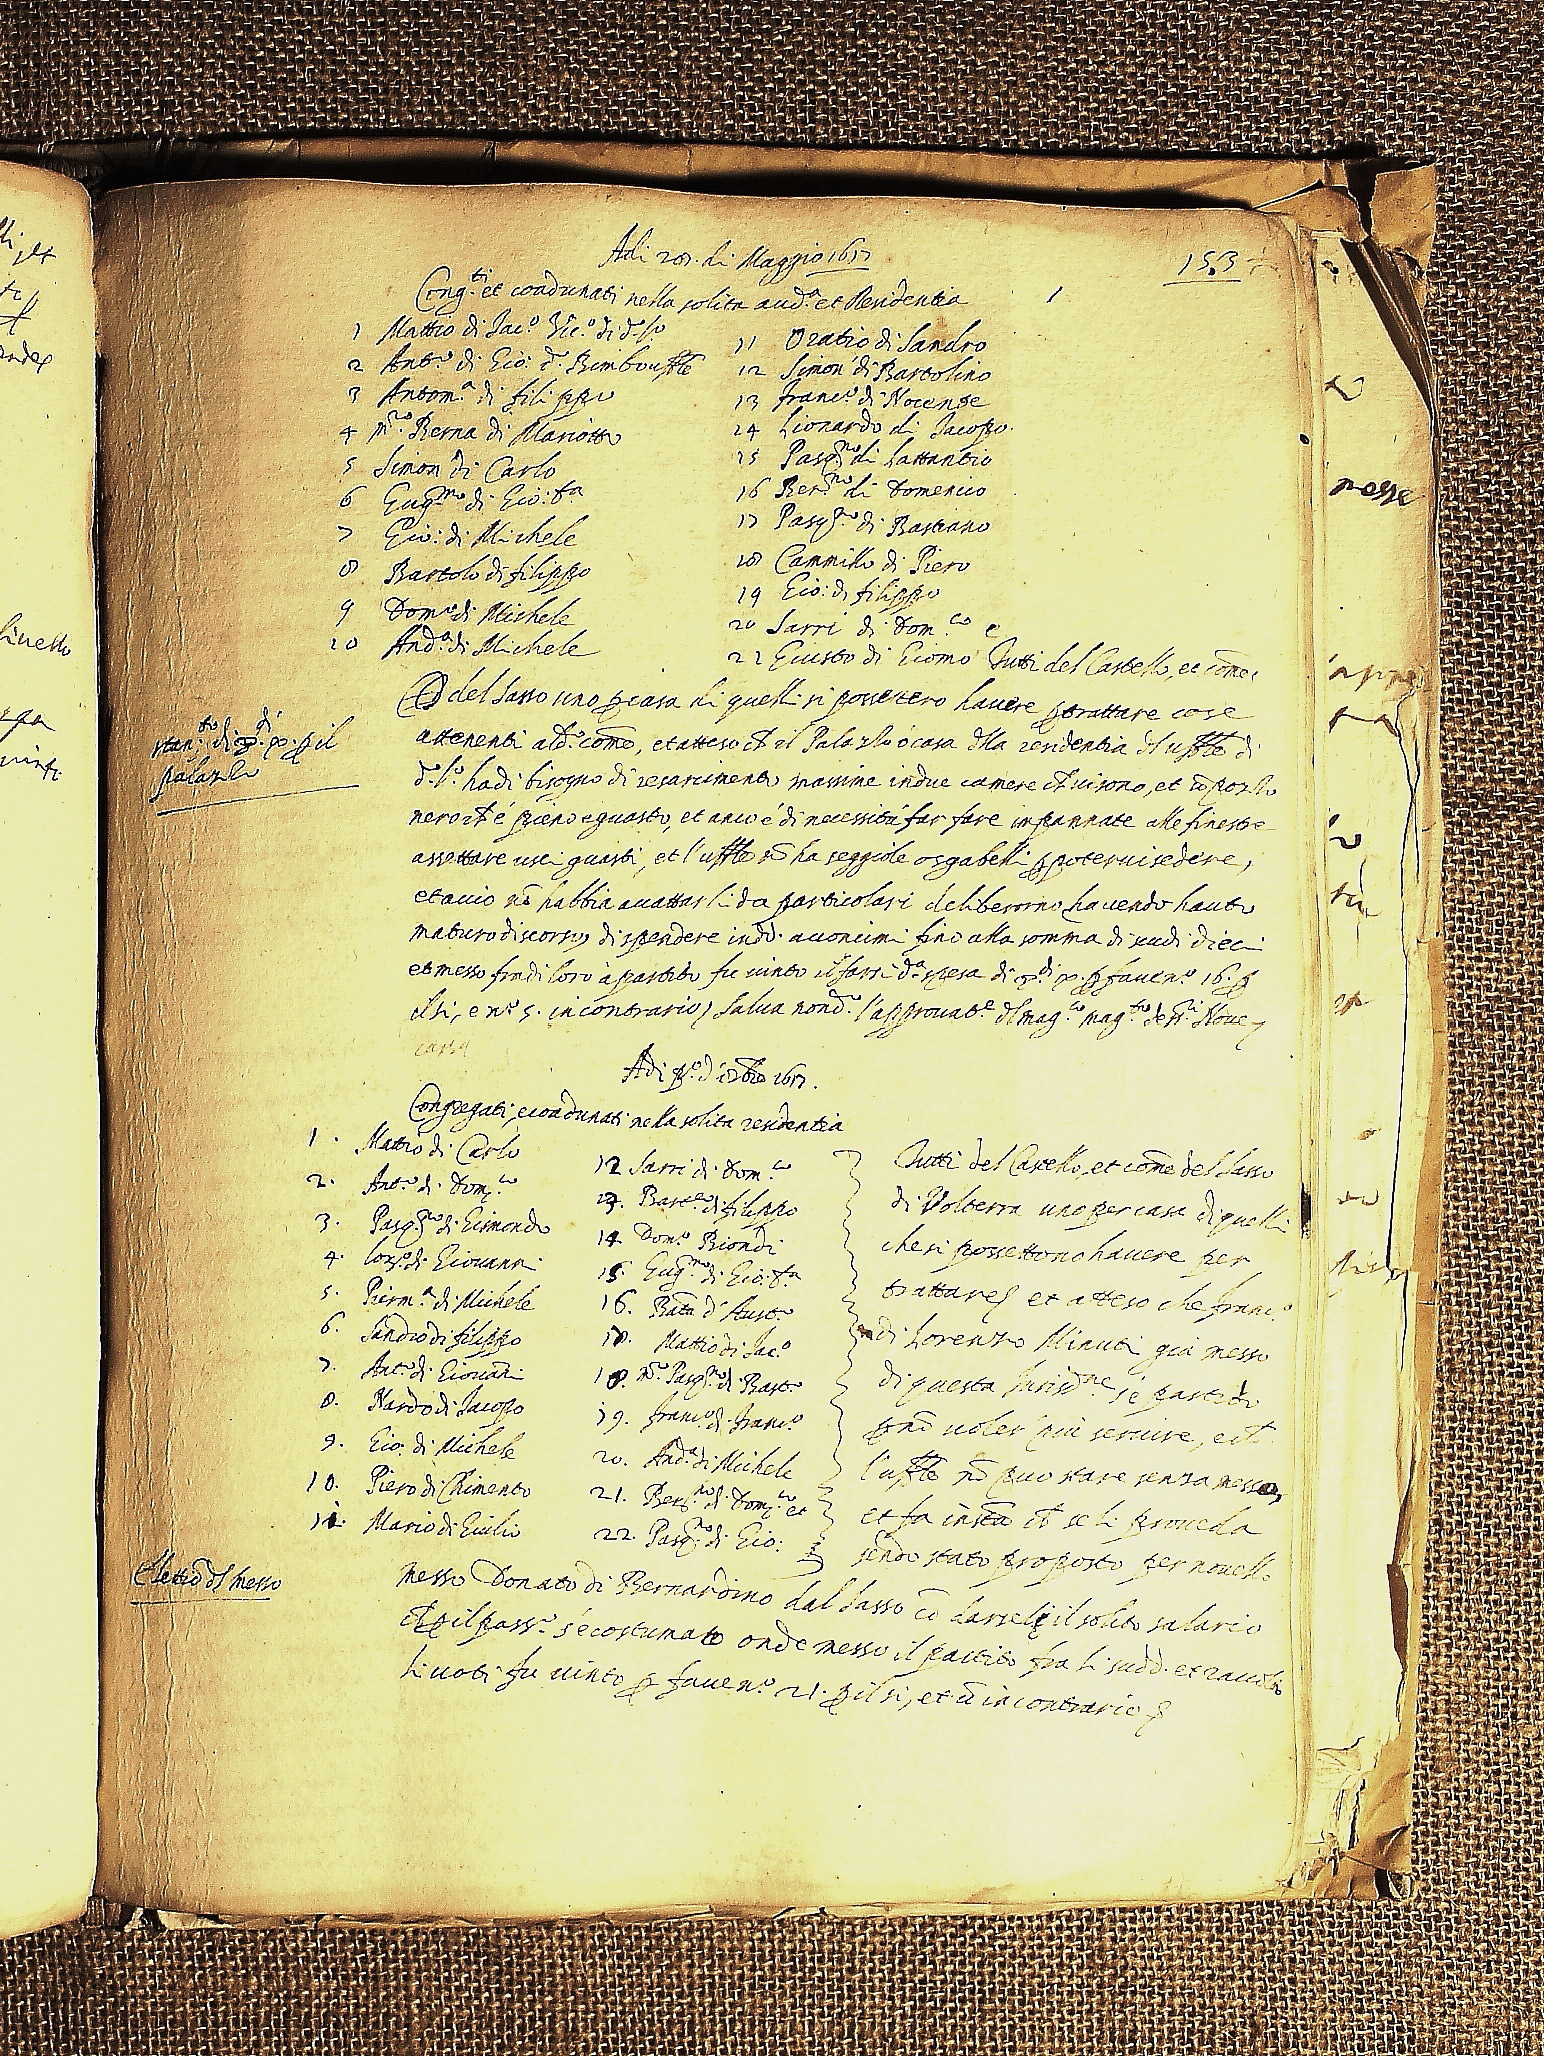 Adi 28. di Maggio 1617
153
Cong.ti et coadunati nella solita aud.a et Residentia
1 Mattio di Jac.o
2 Ant.o di Gio:
3 Antom.a di filippo
4 m.ro Berna di Mariotto
5 Simon di Carlo
6 Eug.mo di Gio: b.a
7 Gio: di Michele
8 Bartolo di filippo
9 Dom.co di Michele
10 And.a di Michele
11 Oratio di Sandro
12 Simon di Bartolino
13 franc.o di Nocenze
14 Lionardo di Jacopo
15 Pasq.no di Lattantio
16 Ber.no di Domenico
17 Pasq.no di Bastiano
18 Cammillo di Piero
19 Gio: di filippo
20 Sarri di Dom.co e
21 Giusto di Giomo Tutti del Castello, et come
del Sasso uno p casa di quelli si possettero havere p trattare cose
attenenti a d.o come, et atteso ch il Palazzo o casa dlla residentia dl uffle di
d.o l.o ha di bisogno di resarcimento massime in due camere ch vi sono, et
nero ch è pieno e guasto, et anco è di necessità far fare impannate alle finestre
assettare usci guasti, et l'uffle no ha seggiole o sgabelli p potervi sedere,
et acciò no habbia accattarli da particolari deliberorno havendo hauto
maturo discorso di spendere in dd. acconcimi fino alla somma di scudi dieci
et messo fra di loro a partito fu vinto il farsi d.a spesa di p faven.o 16 p
il si, e n.o 5. in contrario, salva nond.o l'approvat.e dl mag.co mag.to de ss.i Nove
stan.to di p il
palazzo
Adi p.o d'8bre 1617.
Congregati, e coadunati nella solita residentia
1. Mattio di Carlo
2. Ant.o di Dom.co
3. Pasq.no di Gismondo
4. Lor.o di Giovanni
5. Pierm.a di Michele
6. Sandro di filippo
7. Ant.o di Giovani
8. Nardo di Jacopo
9. Gio. di Michele
10. Piero di Chimento
11. Mario di Giulio
12 Sarri di Dom.co
13. Bart.o di filippo
14 Dom.co Biondi
15. Eug.mo di Gio: b.a
16. Bata d'Aust.o
17. Mattio di Jac.o
18. m.ro Pasq.no di Bast.o
19. franc.o di franc.o
20. And.a di Michele
21. Ber.no di Dom.co et
22. Pasq.no di Gio:
Tutti del Castello, et come del Sasso
di Volterra uno per casa di quelli
che si possettono havere per
trattare et atteso che franc.o
di Lorenzo Minuti già messo
di questa Jurisd.ne s'è partito
p no voler più servire, e ch
l'uffle no può stare senza messo,
et fa insta ch se li proveda
sendo stato proposto per novello
Elettio dl messo
messo Donato di Bernardino dal Sasso co darseli il solito salario
ch p il pass.o s'è costumato onde messo il partito fra li sudd. et racolti
li voti fu vinto p faven.o 21. p il si, et u in contrario